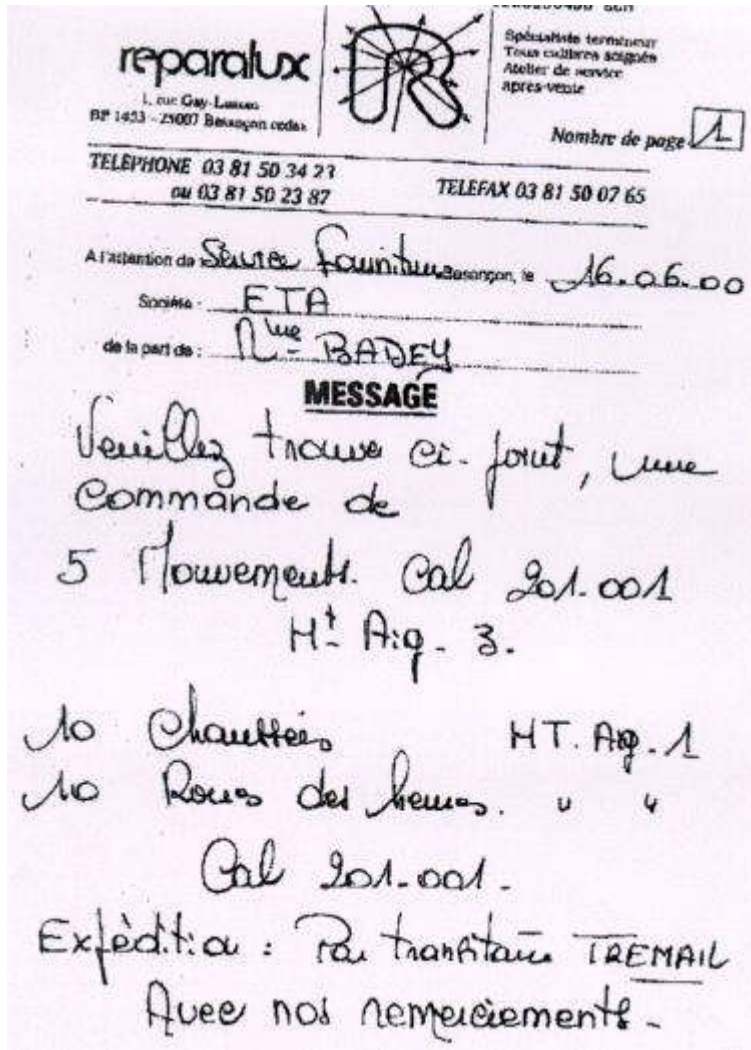 reparalux
1, rue Gay-Lussac
BP 1453 - 25007 Besançon cedex
R
Spécialiste termineur
Tous calibres soignés
Atelier de service
après-vente
Nombre de page 1
TELEPHONE 03 81 50 34 23
ou 03 81 50 23 87
TELEFAX 03 81 50 07 65
A l'attention de Service Fournitures Besançon, le 16.06.00
Société : ETA
de la part de : Mme BADEY
MESSAGE
Veuillez trouver ci-joint, une
Commande de
5 Mouvements. Cal 201.001
Ht Aig. 3.
10 Chaussées HT. Aig. 1
10 Roues des heures. " "
Cal 201.001.
Expédition : Par transitaire TREMAIL
Avec nos remerciements.